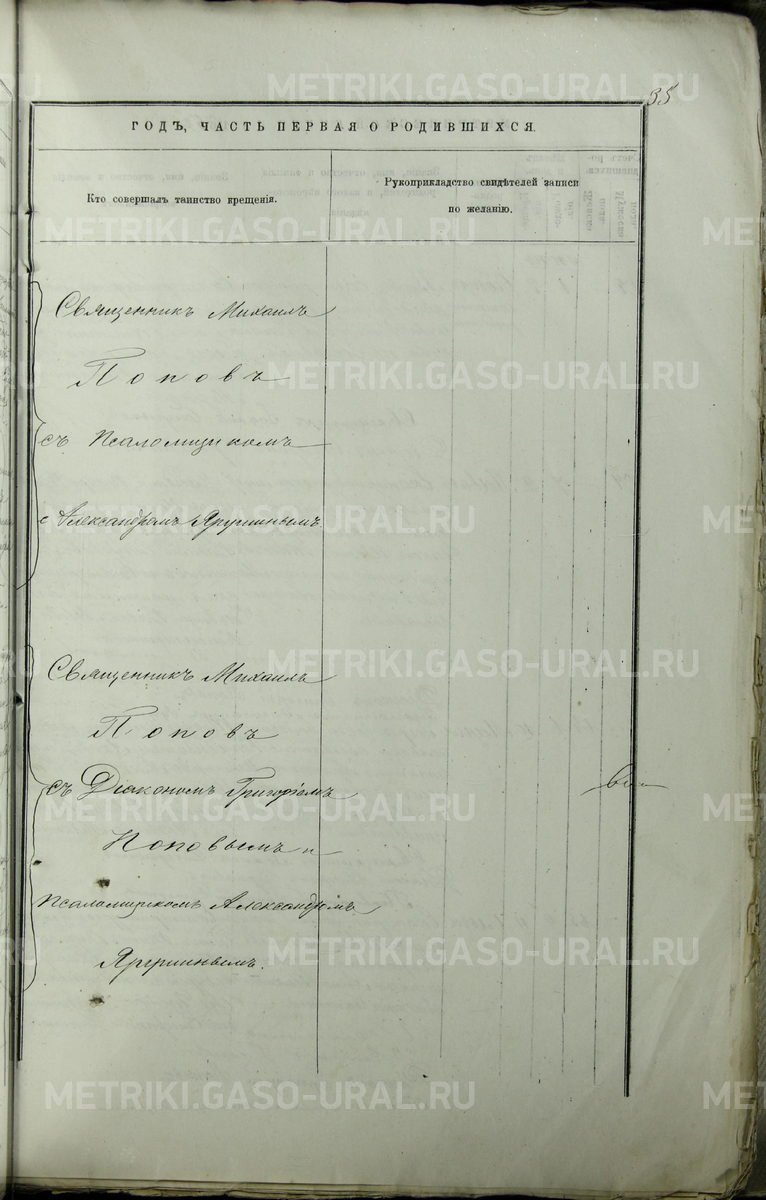 35
ГОДЪ, ЧАСТЬ ПЕРВАЯ О РОДИВШИХСЯ.
Кто совершалъ таинство крещенія.
Рукоприкладство свидѣтелей записи
по желанію.
Священникъ Михаилъ
Поповъ
съ Псаломщикомъ
Александромъ Яру
Священникъ Михаилъ
Поповъ
съ Діакономъ Григоріемъ
Поповымъ и
Псаломщикомъ Александромъ
METRIKI.GASO-URAL.RU